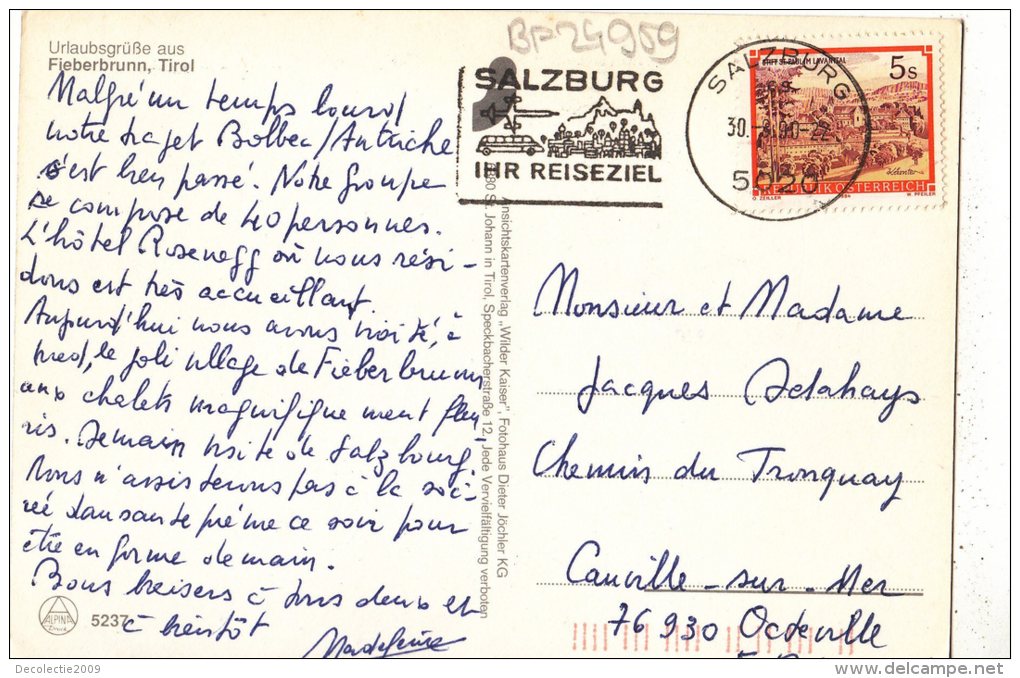 BP24959
Urlaubsgrüße aus
Fieberbrunn, Tirol
SALZBURG
IHR REISEZIEL
SALZBURG
30.
5020
STIFT ST. PAUL IM LAVANTTAL
5s
REPUBLIK ÖSTERREICH
O. ZEILLER
1984
W. PFEILER
Malgré un temps lourd
notre trajet Bolbec/Autriche
s'est bien passé. Notre groupe
se compose de 40 personnes.
L'hôtel Rosenegg où nous rési-
dons est très accueillant.
Aujourd'hui nous avons visité, à
pied, le joli village de Fieberbrunn
aux chalets magnifiquement fleu-
ris. Demain visite de Salzbourg.
Nous n'assisterons pas à la soi-
rée dansante prévue ce soir pour
être en forme demain.
Bons baisers à tous deux et
à bientôt
Madeleine
Ansichtskartenverlag „Wilder Kaiser", Fotohaus Dieter Jöchler KG
St. Johann in Tirol, Speckbacherstraße 12, Jede Vervielfältigung verboten
Monsieur et Madame
Jacques Delahays
Chemin du Tronquay
Cauville-sur-Mer
76930 Octeville
ALPINA
5237
Decolectie2009